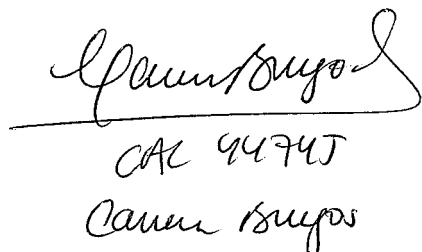 Carmen Burgos
CAL 44745
Carmen Burgos